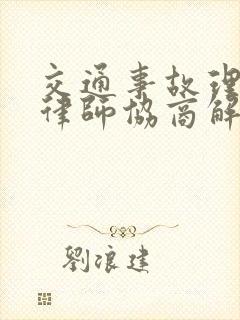 交通事故理
律師協商解
劉浪建